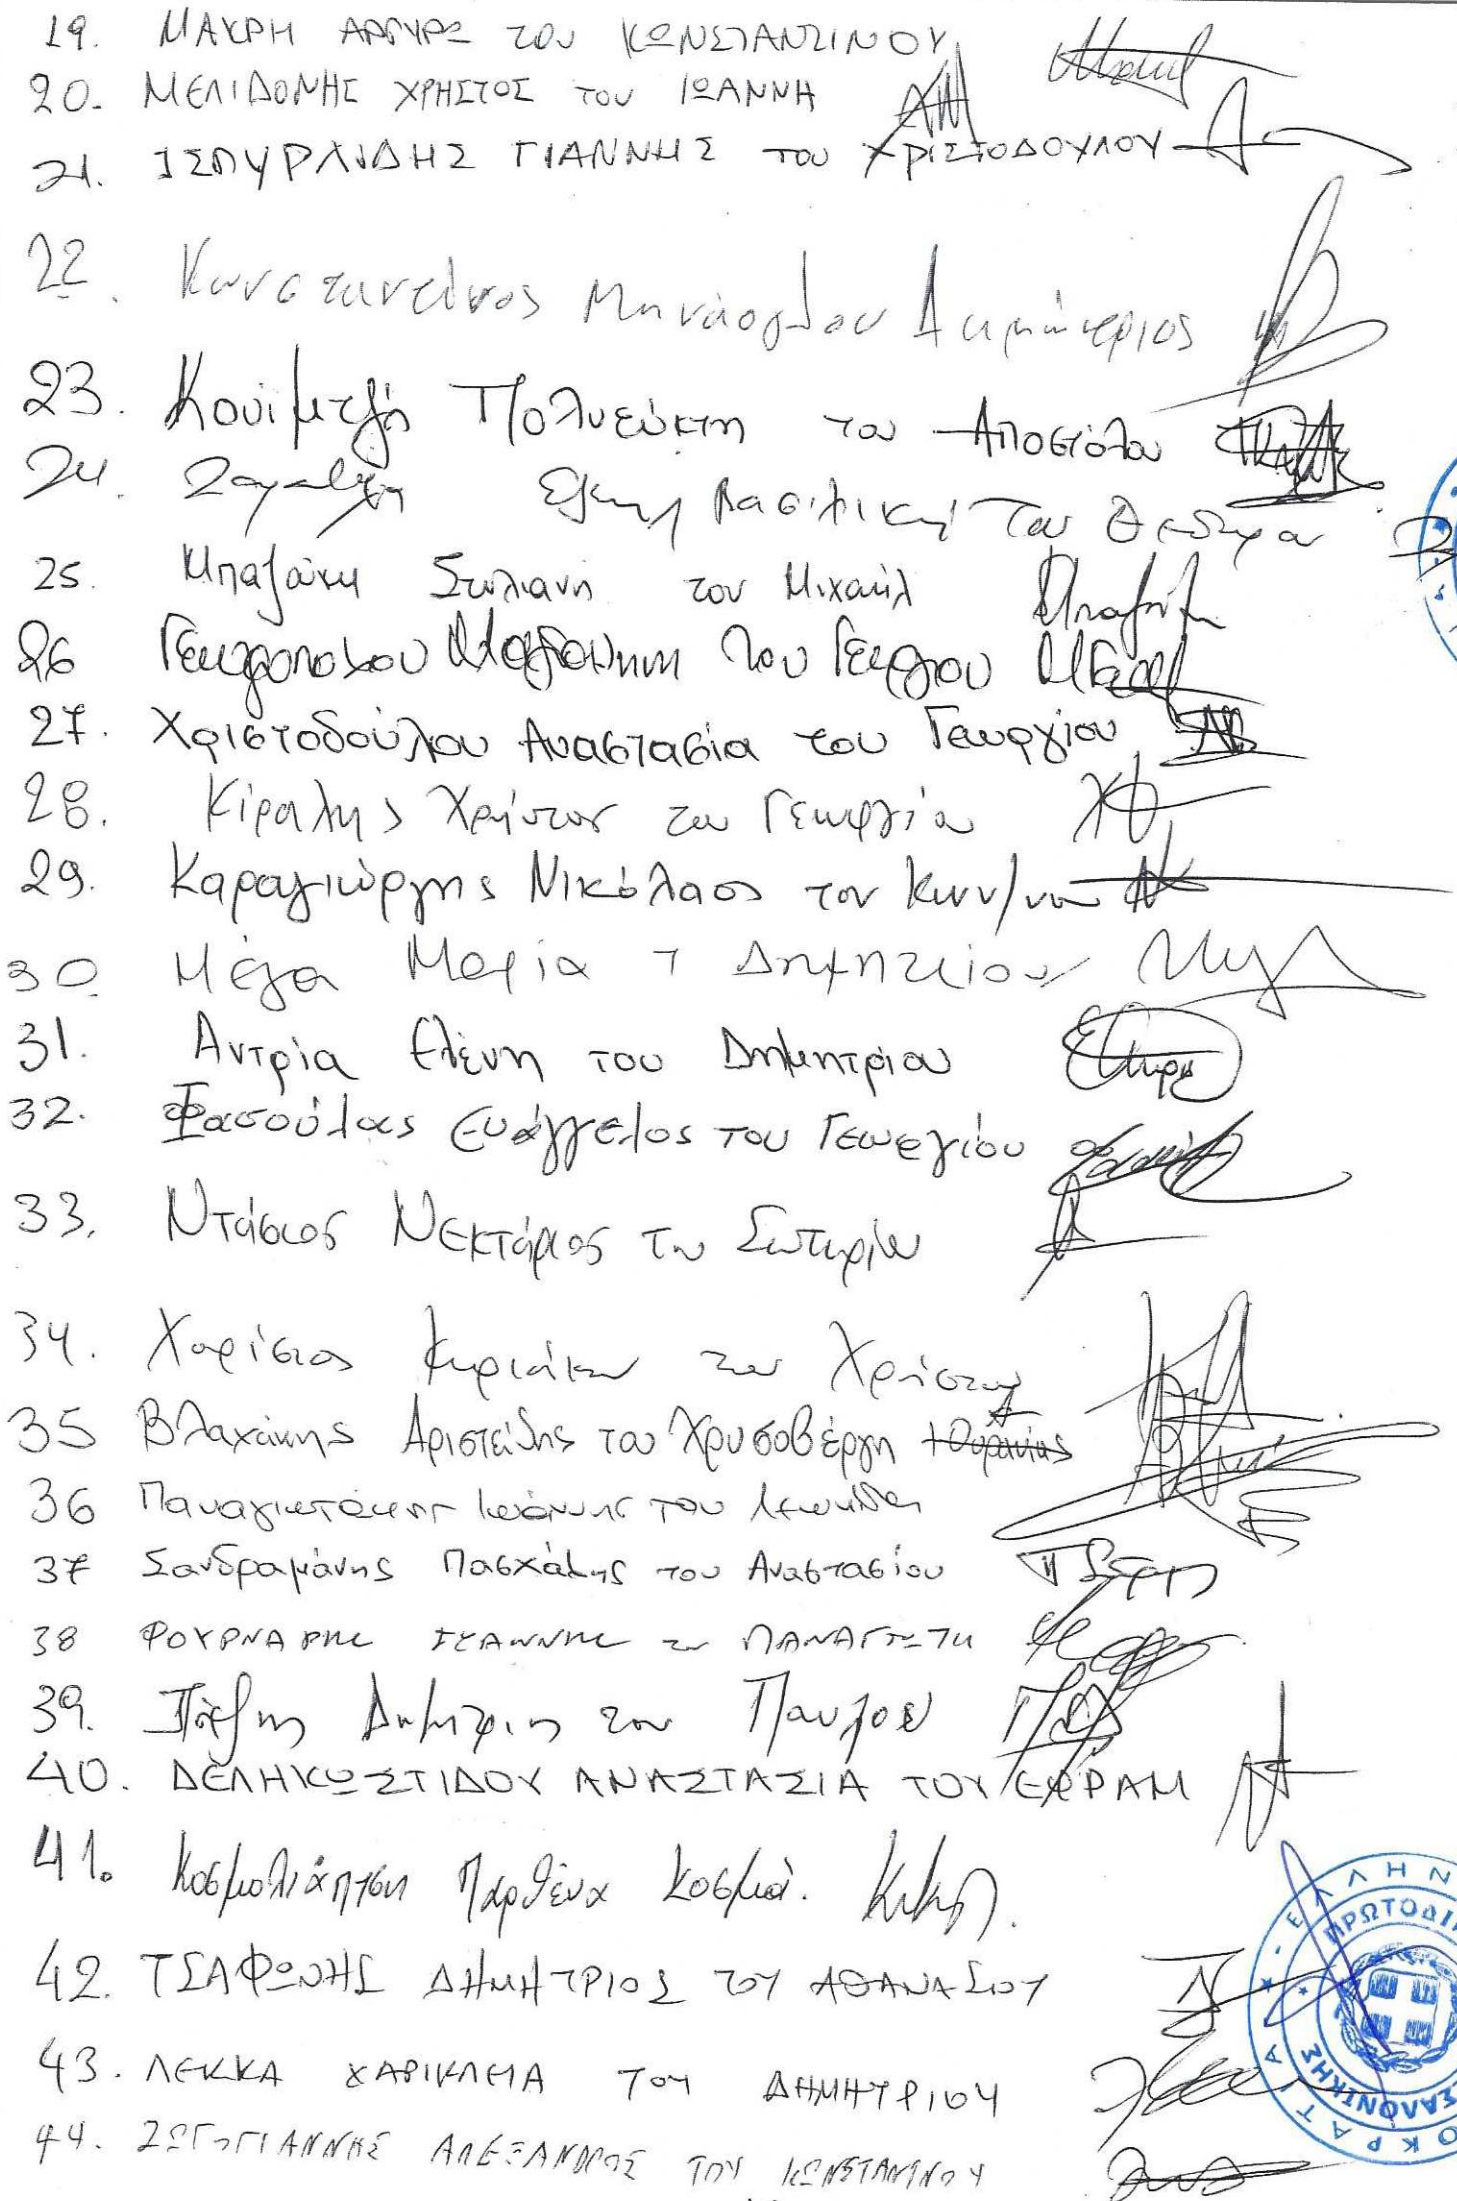 19. ΜΑΚΡΗ ΑΡΓΥΡΩ του ΚΩΝΣΤΑΝΤΙΝΟΥ
20. ΜΕΛΙΔΟΝΗΣ ΧΡΗΣΤΟΣ του ΙΩΑΝΝΗ
21. ΙΣΠΥΡΛΙΔΗΣ ΓΙΑΝΝΗΣ του ΧΡΙΣΤΟΔΟΥΛΟΥ
22. Κωνσταντίνος Μηνάογλου
23. Κουϊμτζή Πολυεύκτη του Αποστόλου
24. Βασιλική του
25. Μπαζάκη Στυλιανή του Μιχαήλ
26 Γεωργοπούλου του Γεωργίου
27. Χριστοδούλου Αναστασία του Γεωργίου
28. Κίραλης Χρήστος του Γεωργίου
29. Καραγιώργης Νικόλαος του Κων/νου
30. Μέγα Μαρία τ Δημητρίου
31. Αντρία Ελένη του Δημητρίου
32. Φασούλας Ευάγγελος του Γεωργίου
33. Ντάσιος Νεκτάριος του Σωτηρίου
34. Χαρίσιος Κυριάκου του Χρήστου
35 Βλαχάκης Αριστείδης του Χρυσοβέργη
36 Παναγιωτάκης Ιωάννης του Λεωνίδα
37 Σανδραμάνης Πασχάλης του Αναστασίου
38 ΦΟΥΡΝΑΡΗΣ ΙΩΑΝΝΗΣ του ΠΑΝΑΓΙΩΤΗ
39. Δημήτριος του Παύλου
40. ΔΕΛΗΚΩΣΤΙΔΟΥ ΑΝΑΣΤΑΣΙΑ ΤΟΥ ΕΦΡΑΜ
41. Κοσμολιάπτση Παρθένα Κοσμά.
42. ΤΣΑΦΩΝΗΣ ΔΗΜΗΤΡΙΟΣ ΤΟΥ ΑΘΑΝΑΣΙΟΥ
43. ΛΕΚΚΑ ΧΑΡΙΚΛΕΙΑ ΤΟΥ ΔΗΜΗΤΡΙΟΥ
44. ΖΩΓΟΓΙΑΝΝΗΣ ΑΛΕΞΑΝΔΡΟΣ ΤΟΥ ΚΩΝΣΤΑΝΤΙΝΟΥ